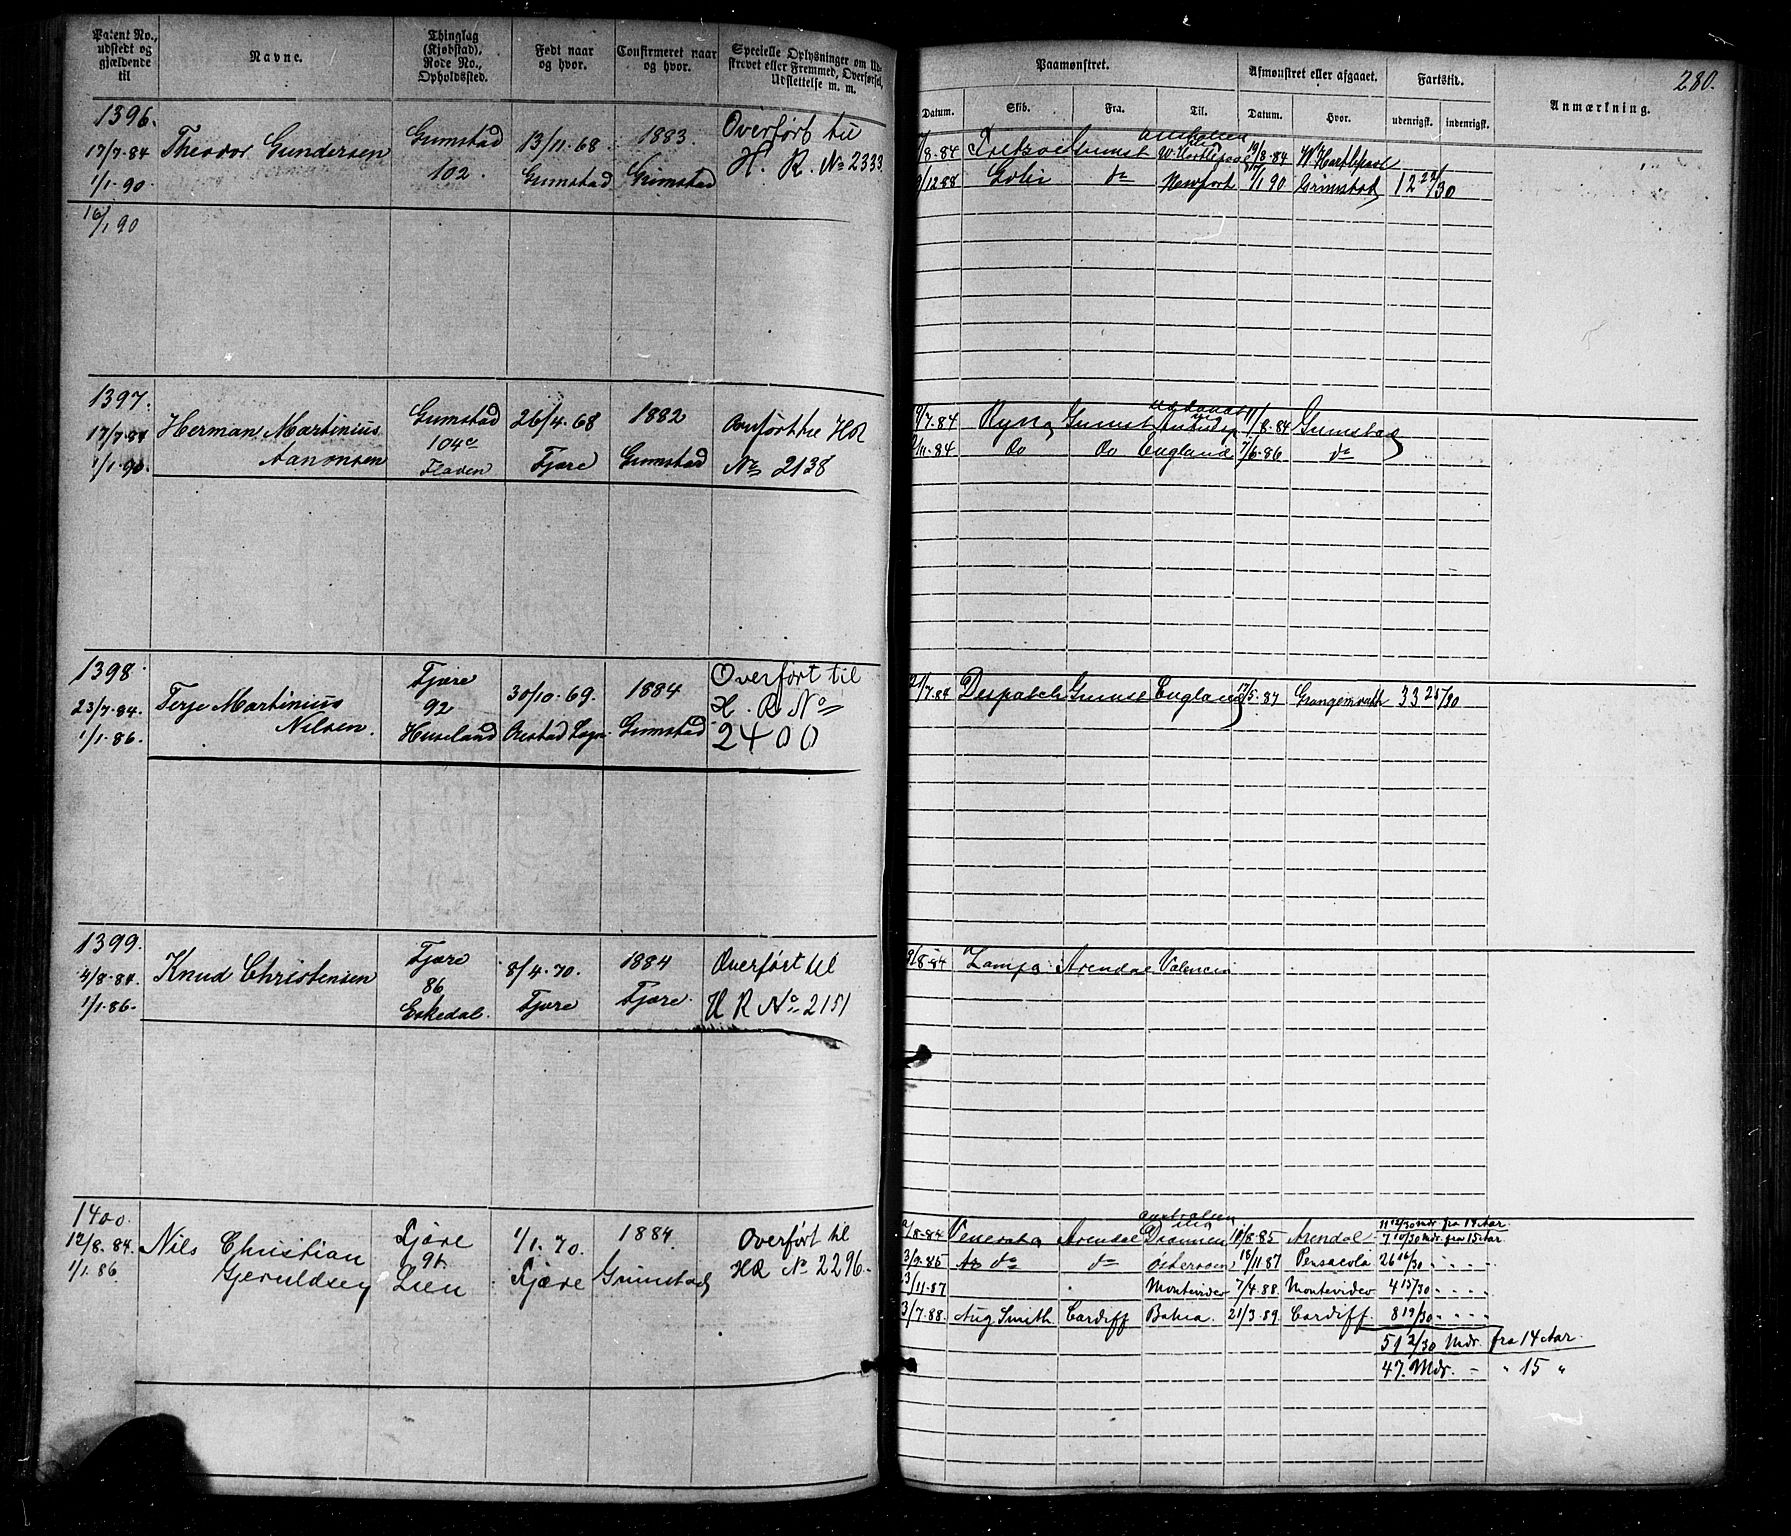 280.
Patent No., udstedt og gjældende til
Navne.
Thinglag (Kjøbstad), Rode No., Opholdssted.
Født naar og hvor.
Confirmeret naar og hvor.
Specielle Oplysninger om Udskrevet eller Fremmed, Overførsel, Udslettelse m. m.
Paamønstret.
Afmønstret eller afgaaet.
Fartstid.
Anmærkning.
Datum. Skib. Fra. Til. Datum. Hvor. udenrigsk. indenrigsk.
1396.
17/7-84
1/1-90
16/1 90
Theodor Gundersen
Grimstad
102
13/11-68
Grimstad
1883
Grimstad
Overført til
H. R. No 2333
/8-84 Grimst W. Hartlepool 19/8-84 W Hartlepool
/12 88 do Newport /1 90 Grimstad 12 22/30
1397.
17/7-84
1/1-90
Herman Martinius
Aanonsen
Grimstad
104c
Fladen
26/4-68
Fjære
1882
Grimstad
Overført til HR
No 2138
9/7-84 Grimst 11/8-84 Grimstad
/11-84 do do England 7/6-86 do
1398.
23/7-84.
1/1-86.
Terje Martinius
Nilsen.
Fjære
92
Huseland
30/10-69.
1884
Grimstad
Overført til
H. R No
2400
/7-84 Despatch Grimst England /5-87 Grangemouth 33 25/30
1399.
4/8-84
1/1-86.
Knud Christensen
Fjære
86
Eskedal.
8/4-70.
Fjære
1884
Fjære.
Overført til
H R No 2151
/8-84 Zampa Arendal Valencia
1400.
12/8.84
1/1.86
Nils Christian
Geruldsen
Fjære
94
Lien
1/1.70.
Fjære
1884.
Grimstad
Overført til
HR No 2296.
11 12/30 Mdr. fra 14 Aar
/8-84 Arendal Drammen /8-85 Arendal 7 10/30 Mdr. fra 15 Aar
3/9-85 do do 18/11 87 Pensacola 26 16/30
/11-87 Montevideo 7/4-88 Montevideo 4 15/30
3/7.88. Aug Smith Cardiff Bahia. 21/3.89 Cardiff 8 19/30
51 2/30 Mdr. fra 14 Aar.
47. Mdr. - " 15 "